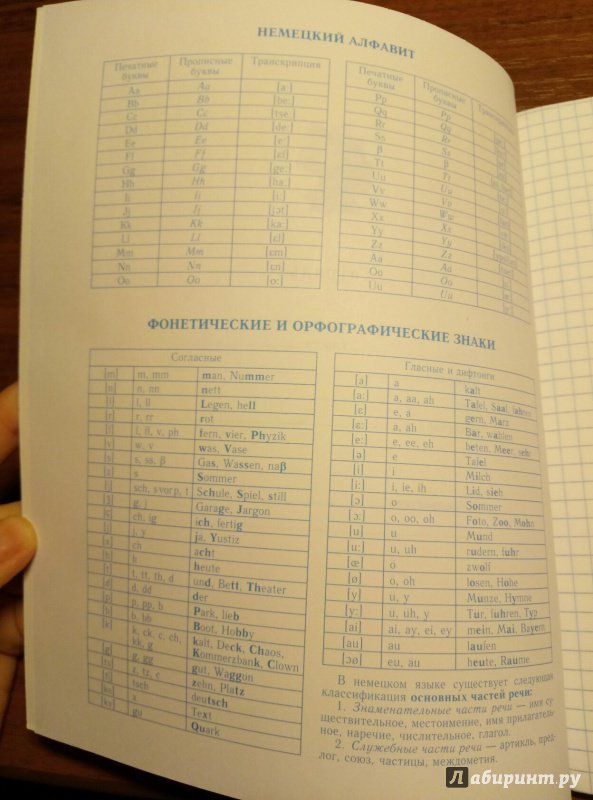 НЕМЕЦКИЙ АЛФАВИТ
Печатные буквы Прописные буквы Транскрипция
Aa Aa [a:]
Bb Bb [be:]
Cc Cc [tse:]
Dd Dd [de:]
Ee Ee [e:]
Ff Ff [ɛf]
Gg Gg [ge:]
Hh Hh [ha:]
Ii Ii [i:]
Jj Jj [jɔt]
Kk Kk [ka:]
Ll Ll [ɛl]
Mm Mm [ɛm]
Nn Nn [ɛn]
Oo Oo [o:]
Печатные буквы Прописные буквы
Pp Pp
Qq Qq
Rr Rr
Ss Ss
β β
Tt Tt
Uu Uu
Vv Vv
Ww Ww
Xx Xx
Yy Yy
Zz Zz
Aa Aa
Oo Oo
Uu Uu
ФОНЕТИЧЕСКИЕ И ОРФОГРАФИЧЕСКИЕ ЗНАКИ
Согласные
[m] m, mm man, Nummer
[n] n, nn nett
[l] l, ll Legen, hell
[r] r, rr rot
[f] f, ff, v, ph fern, vier, Phyzik
[v] w, v was, Vase
s, ss, β Gas, Wassen, naβ
s Sommer
sch, s vorp, t Schule, Spiel, still
g, j Garage, Jargon
ch, ig ich, fertig
j, y ja, Yustiz
ch acht
h heute
t, tt, th, d und, Bett, Theater
d, dd der
p, pp, b Park, lieb
b, bb Boot, Hobby
[k] k, ck, c, ch, kk, g kalt, Deck, Chaos, Kommerzbank, Clown
[g] g, gg gut, Waggon
z, tz, c zehn, Platz
tsch deutsch
x Text
qu Quark
Гласные и дифтонги
[a] a kalt
[a:] a, aa, ah Tafel, Saal, fahren
[ɛ] e, a gern, Marz
[ɛ:] a, ah Bar, wahlen
[e:] e, ee, oh beten, Meer, sehr
[ə] e Tafel
[i] i Milch
[i:] i, ie, ih Lid, sieh
[ɔ] o Sommer
[ɔ:] o, oo, oh Foto, Zoo, Mohn
[u] u Mund
[u:] u, uh rudern, fuhr
[œ] o zwolf
[ø] o, oh losen, Hohe
[y] u, y Munze, Hymne
[y:] u, uh, y Tur, fuhren, Typ
[ai] ai, ay, ei, ey mein, Mai, Bayern
[au] au laufen
[ɔø] eu, au heute, Raume
В немецком языке существует следующая
классификация основных частей речи:
1. Знаменательные части речи — имя су-
ществительное, местоимение, имя прилагатель-
ное, наречие, числительное, глагол.
2. Служебные части речи — артикль, пред-
лог, союз, частицы, междометия.
Лабиринт.ру